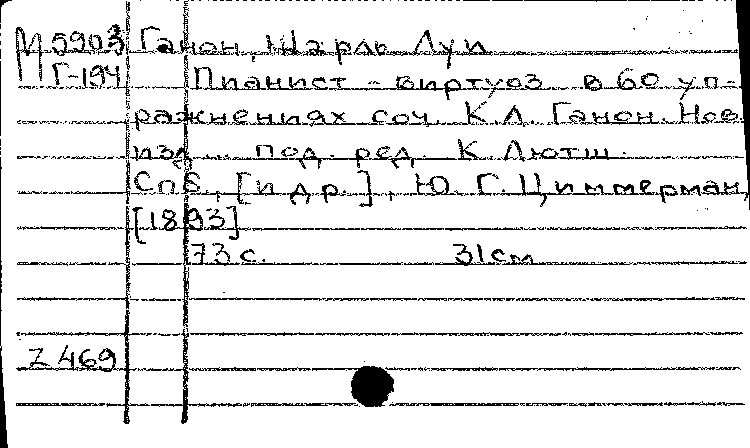 М 5903 Ганон, Шарль Луи
Г-194 Пианист - виртуоз в 60 уп-
ражнениях соч. К.Л. Ганон. Нов.
изд... под. ред. К Лютш.
Спб., [и др.], Ю. Г. Циммерман,
[1893]
73 с. 31 см
Z 469